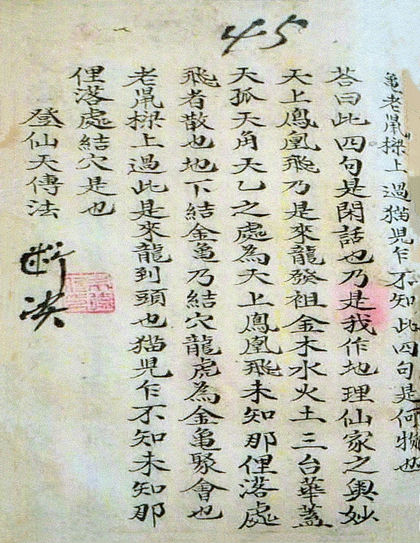 45
龜老鼠樑上過猫児乍不知此四句是何物也
荅曰此四句是閑話也乃是我作地理仙家之奥妙
天上鳳凰飛乃是來龍發祖金木水火土三台華蓋
天孤天角天乙之處為天上鳳凰飛未知那俚落處
飛者散也地下結金龜乃結穴龍虎為金龜聚會也
老鼠樑上過此是來龍到頭也猫児乍不知未知那
俚落處結穴是也
登仙天傳法
断决